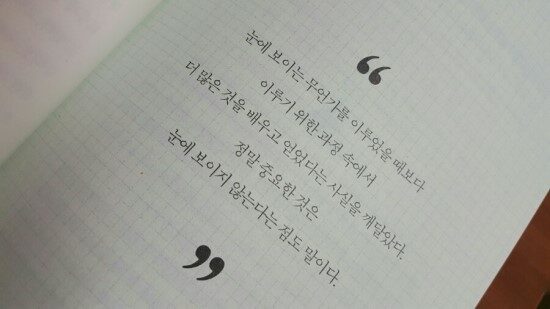 “
눈에 보이는 무언가를 이루었을 때보다
이루기 위한 과정 속에서
더 많은 것을 배우고 얻었다는 사실을 깨달았다.
정말 중요한 것은
눈에 보이지 않는다는 점도 말이다.
”